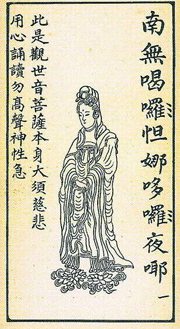 南無喝囉怛娜哆囉夜耶
一
此是觀世音菩薩本身大須慈悲
用心誦讀勿高聲神性急